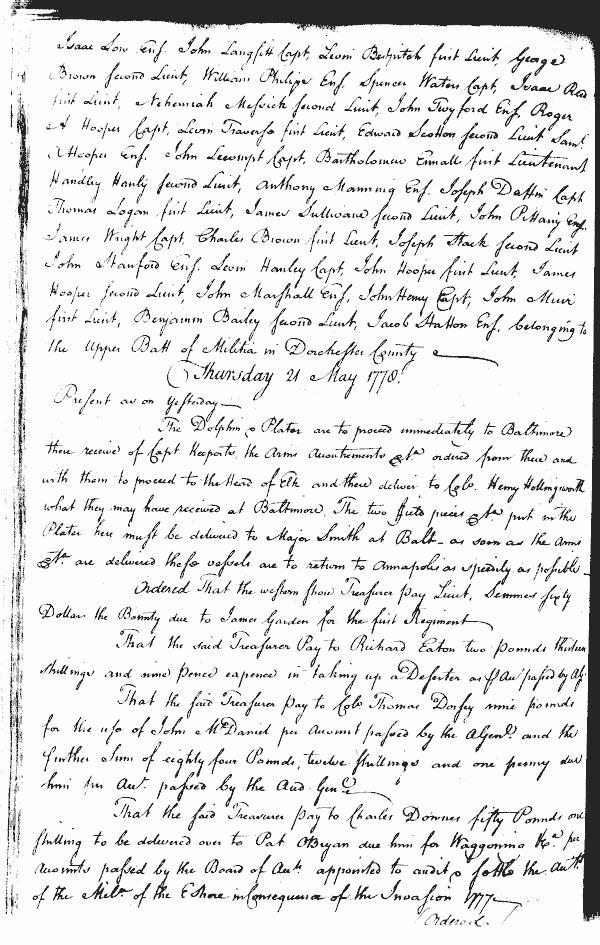 Isaac Low Ens. John Langfitt Capt, Levin Bestpitch first Lieut, George
Brown second Lieut, William Philips Ens. Spencer Waters Capt, Isaac
first Lieut, Nehemiah Messick second Lieut, John Twyford Ens. Roger
A Hooper Capt, Levin Traverse first Lieut, Edward Scotton second Lieut Saml.
Hooper Ens. John Lecompt Capt, Bartholomew Ennall first Lieutenant
Handley Hanly second Lieut, Anthony Manning Ens. Joseph Daffin Capt
Thomas Logan first Lieut, James Sullivane second Lieut, John Ens.
James Wright Capt, Charles Brown first Lieut, Joseph Stack second Lieut
John Stanford Ens. Levin Hanley Capt, John Hooper first Lieut, James
Hooper second Lieut, John Marshall Ens, John Henry Capt, John Muir
first Lieut, Benjamin Bailey second Lieut, Jacob Hatton Ens. belonging to
the Upper Batt of Militia in Dorchester County
Thursday 21 May 1778.
Present as on yesterday
The Dolphin & Plater are to proceed immediately to Baltimore
there receive of Capt Keeports, the Arms Accoutrements &ta. ordered from there and
with them to proceed to the Head of Elk and there deliver to Colo. Henry Hollingsworth
what they may have received at Baltimore. The two field pieces &ta put in the
Plater here must be delivered to Major Smith at Balt- as soon as the Arms
&ta. are delivered these vessels are to return to Annapolis as speedily as possible
Ordered That the western shore Treasurer pay Lieut, Semmes sixty
Dollars the Bounty due to James Garden for the first Regiment
That the said Treasurer Pay to Richard Eaton two pounds thirteen
shillings and nine pence expence in taking up a Deserter as pr Au passed by
That the said Treasurer pay to Colo Thomas Dorsey nine pounds
for the use of John McDaniel per Account passed by the AGenl. and the
further Sum of eighty four Pounds, twelve shillings and one penny due
him per Au. passed by the Aud Genl.
That the said Treasurer pay to Charles Downes fifty Pounds one
shilling to be delivered over to Pat OBryan due him for Waggoning &ca. per
accounts passed by the Board of Auts. appointed to audit & settle the Auts.
of the Mila. of the E Shore in Consequence of the Invasion 1777
Ordered